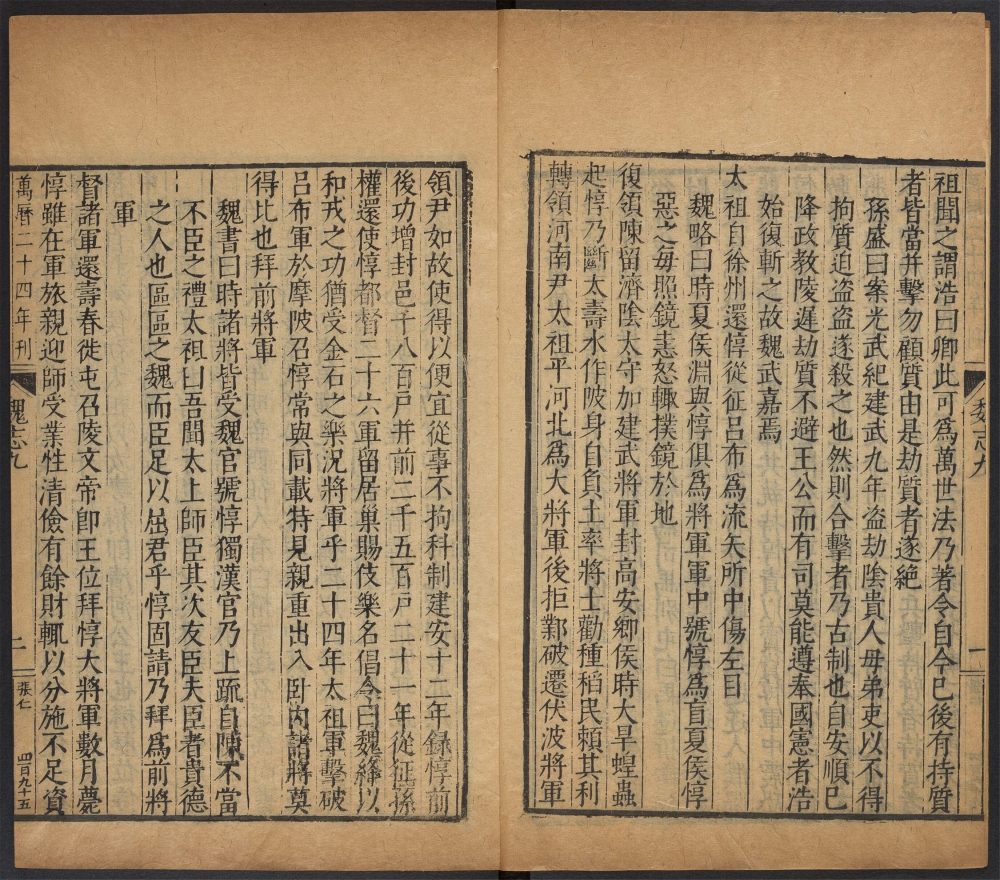 祖聞之謂浩曰卿此可爲萬世法乃著令自今已後有持質
者皆當并擊勿顧質由是劫質者遂絶
孫盛曰案光武紀建武九年盗劫陰貴人母弟吏以不得
拘質迫盗盗遂殺之也然則合擊者乃古制也自安順已
降政教陵遲劫質不避王公而有司莫能遵奉國憲者浩
始復斬之故魏武嘉焉
太祖自徐州還惇從征吕布爲流矢所中傷左目
魏略曰時夏侯淵與惇俱爲將軍軍中號惇爲盲夏侯惇
惡之毎照鏡恚怒輙撲鏡於地
復領陳留濟陰太守加建武將軍封高安鄉侯時大旱蝗蟲
起惇乃斷太壽水作陂身自負土率將士勸種稻民賴其利
轉領河南尹太祖平河北爲大將軍後拒鄴破遷伏波將軍
魏志九
一
領尹如故使得以便宜從事不拘科制建安十二年録惇前
後功增封邑千八百戸并前二千五百戸二十一年從征孫
權還使惇都督二十六軍留居巢賜伎樂名倡令曰魏絳以
和戎之功猶受金石之樂況將軍乎二十四年太祖軍擊破
吕布軍於摩陂召惇常與同載特見親重出入卧内諸將莫
得比也拜前將軍
魏書曰時諸將皆受魏官號惇獨漢官乃上疏自陳不當
不臣之禮太祖曰吾聞太上師臣其次友臣夫臣者貴德
之人也區區之魏而臣足以屈君乎惇固請乃拜爲前將
軍
督諸軍還壽春徙屯召陵文帝卽王位拜惇大將軍數月薨
惇雖在軍旅親迎師受業性清儉有餘財輒以分施不足資
萬曆二十四年刊
魏志九
二
張仁
四百九十五